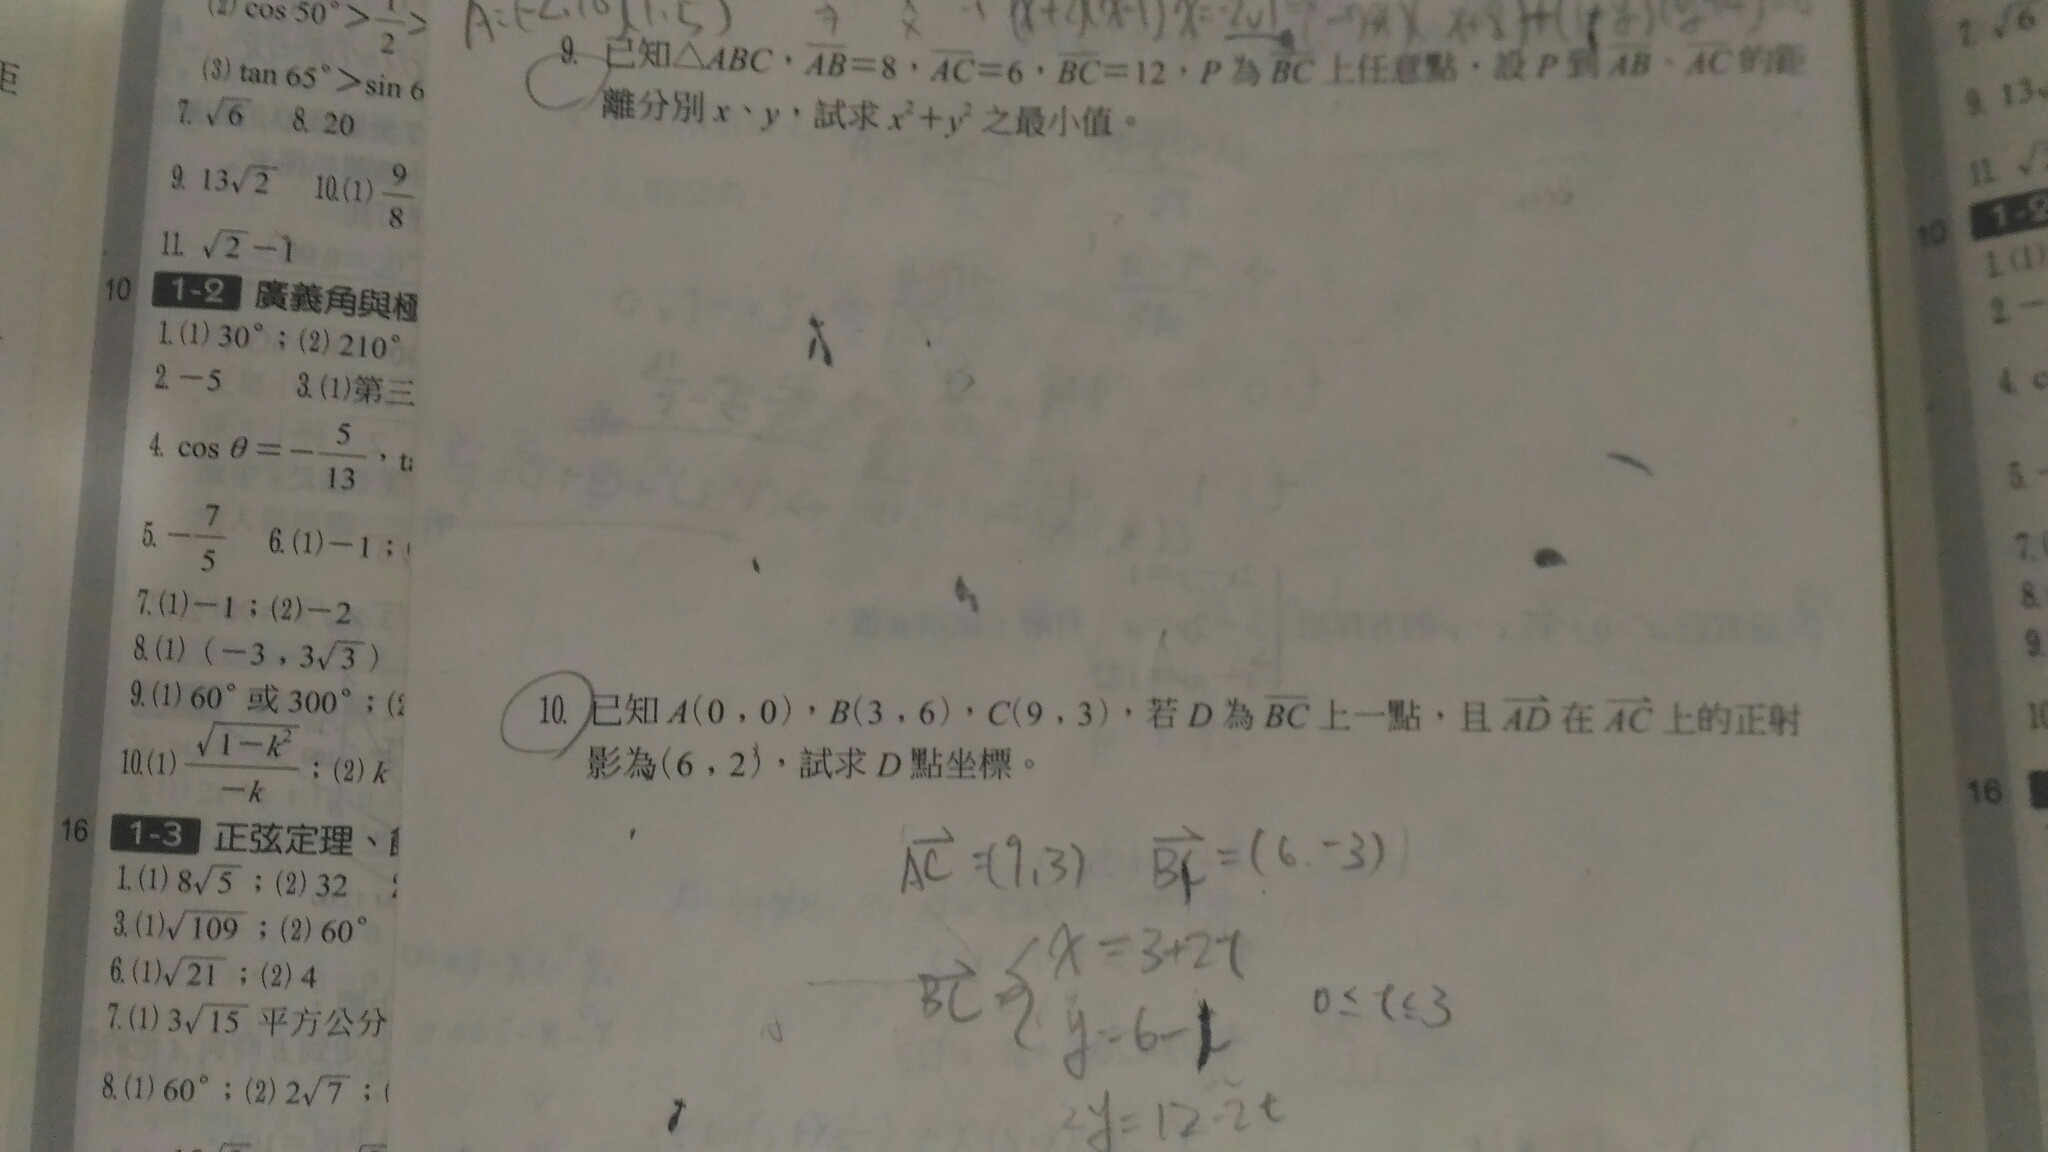 (2) cos 50°>1/2>
(3) tan 65°>sin 6
7. √6 8. 20
9. 13√2 10.(1) 9/8
11. √2-1
10 1-2 廣義角與極
1.(1) 30°；(2) 210°
2. -5 3.(1)第三
4. cos θ=-5/13，ta
5. -7/5 6.(1)-1；(
7.(1)-1；(2)-2
8.(1) (-3，3√3)
9.(1) 60° 或 300°；(2
10.(1) √1-k²/-k；(2) k
16 1-3 正弦定理、
1.(1) 8√5；(2) 32
3.(1)√109；(2) 60°
6.(1)√21；(2) 4
7.(1) 3√15 平方公分
8.(1) 60°；(2) 2√7；(
9. 已知△ABC，AB=8，AC=6，BC=12，P 為 BC 上任意點，設 P 到 AB、AC 的距
離分別 x、y，試求 x²+y² 之最小值。
10. 已知 A(0，0)，B(3，6)，C(9，3)，若 D 為 BC 上一點，且 AD 在 AC 上的正射
影為(6，2)，試求 D 點坐標。
AC=(9,3) BC=(6.-3)
BC x=3+2t
y=6-t 0≤t≤3
2y=12-2t
距
7. √6
9. 13√
11. √
10 1-2
1.(1)
2. -
4. c
5. -
7.(
8.
9.
10
16